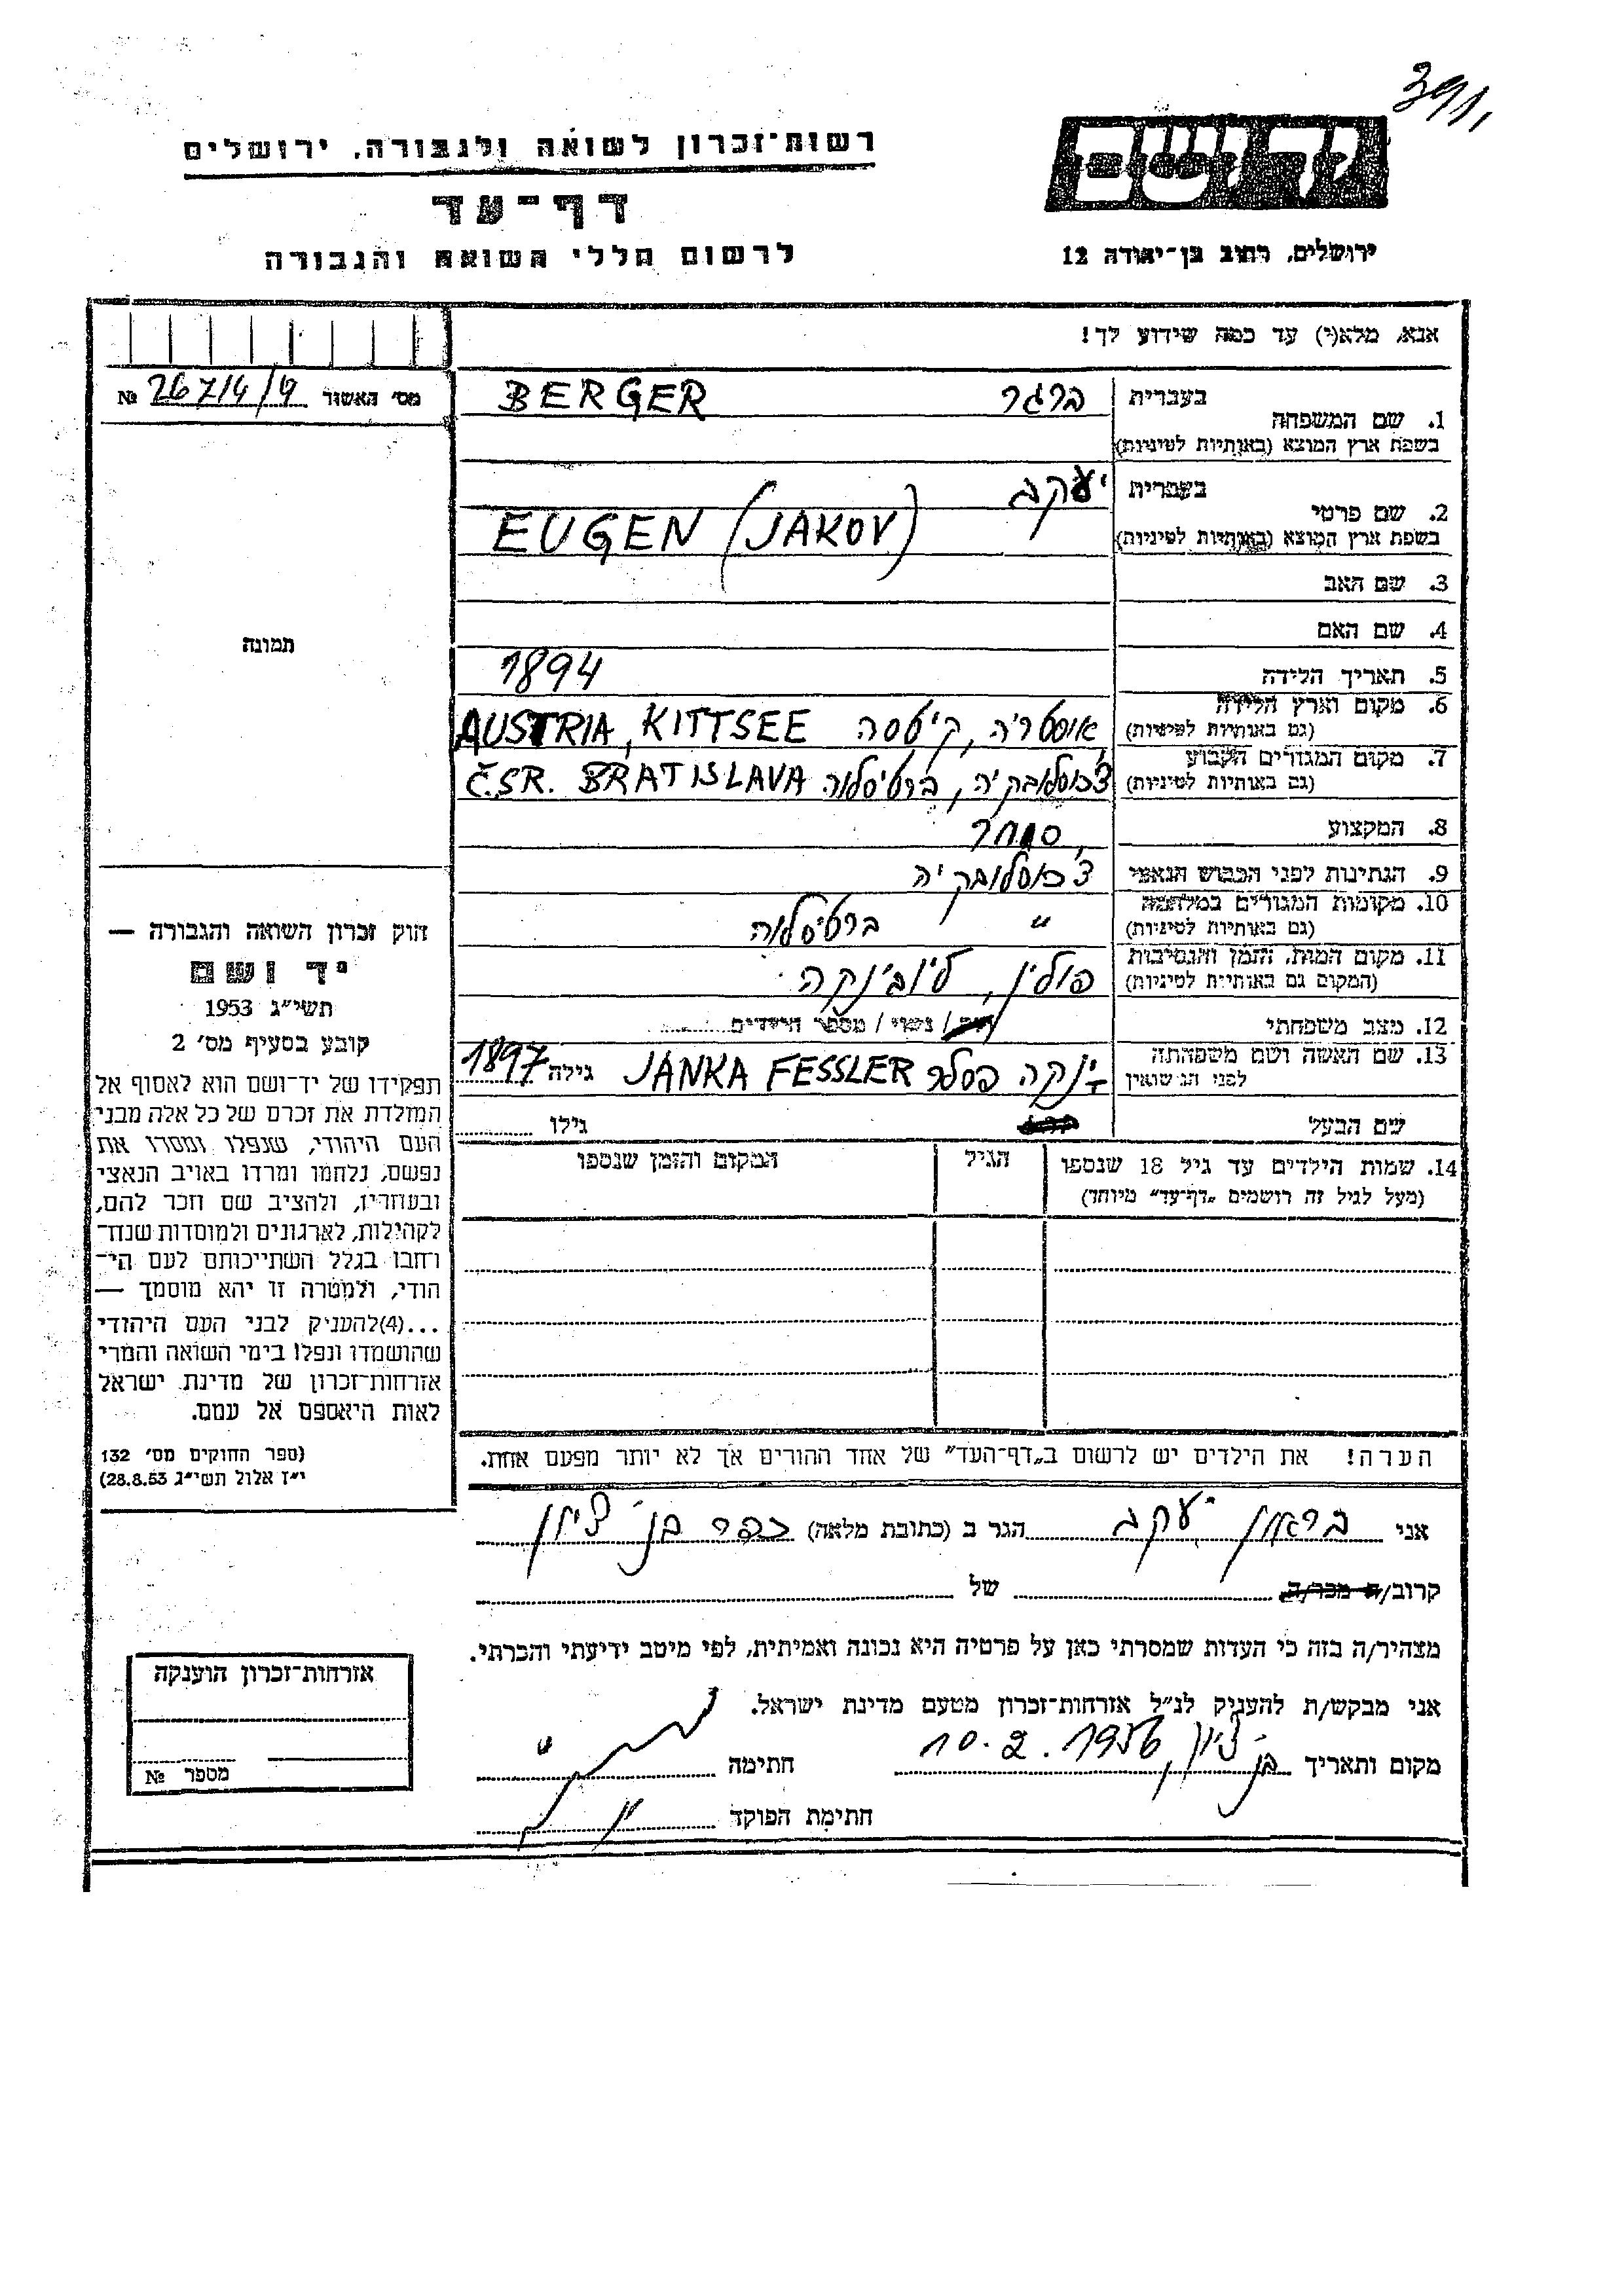 391,
רשות־זכרון לשואה ולגבורה, ירושלים
יד ושם
דף־עד
לרשום חללי השואה והגבורה
ירושלים, רחוב בן־יהודה 12
אנא, מלא(י) עד כמה שידוע לך!
מס׳ האשור № 267/4/9
1. שם המשפחה
בעברית ברגר BERGER
בשפת ארץ המוצא (באותיות לטיניות)
בעברית יעקב
2. שם פרטי
בשפת ארץ המוצא (באותיות לטיניות) EUGEN (JAKOV)
3. שם האב
4. שם האם
5. תאריך הלידה 1894
6. מקום וארץ הלידה
(גם באותיות לטיניות) אוסטריה, קיטסה AUSTRIA, KITTSEE
7. מקום המגורים הקבוע
(גם באותיות לטיניות) צ׳כוסלובקיה, ברטיסלוה Č.SR. BRATISLAVA
8. המקצוע סוחר
9. הנתינות לפני הכבוש הנאצי צ׳כוסלובקיה
10. מקומות המגורים במלחמה
(גם באותיות לטיניות) " ברטיסלוה
11. מקום המות, הזמן והנסיבות
(המקום גם באותיות לטיניות) פולין, ליובינקה
12. מצב משפחתי / נשוי / מספר הילדים
13. שם האשה ושם משפחתה
לפני הנישואין ינקה פסלר JANKA FESSLER גילה 1897
שם הבעל גילו
14. שמות הילדים עד גיל 18 שנספו
(מעל לגיל זה רושמים „דף־עד” מיוחד)
הגיל
המקום והזמן שנספו
הערה! את הילדים יש לרשום ב„דף־העד” של אחד ההורים אך לא יותר מפעם אחת.
תמונה
חוק זכרון השואה והגבורה —
יד ושם
תשי״ג 1953
קובע בסעיף מס׳ 2
תפקידו של יד־ושם הוא לאסוף אל
המולדת את זכרם של כל אלה מבני
העם היהודי, שנפלו ומסרו את
נפשם, נלחמו ומרדו באויב הנאצי
ובעוזריו, ולהציב שם וזכר להם,
לקהילות, לארגונים ולמוסדות שנח־
רבו בגלל השתייכותם לעם הי־
הודי, ולמטרה זו יהא מוסמך —
...(4)להעניק לבני העם היהודי
שהושמדו ונפלו בימי השואה והמרי
אזרחות־זכרון של מדינת ישראל
לאות היאספם אל עמם.
(ספר החוקים מס׳ 132
י״ז אלול תשי״ג 28.8.53)
אני בראון יעקב הגר ב (כתובת מלאה) כפר בן ציון
קרוב/ה מכר/ה של
מצהיר/ה בזה כי העדות שמסרתי כאן על פרטיה היא נכונה ואמיתית, לפי מיטב ידיעתי והכרתי.
אני מבקש/ת להעניק לנ״ל אזרחות־זכרון מטעם מדינת ישראל.
מקום ותאריך בן ציון, 10.2.1956 חתימה
חתימת הפוקד
אזרחות־זכרון הוענקה
מספר №